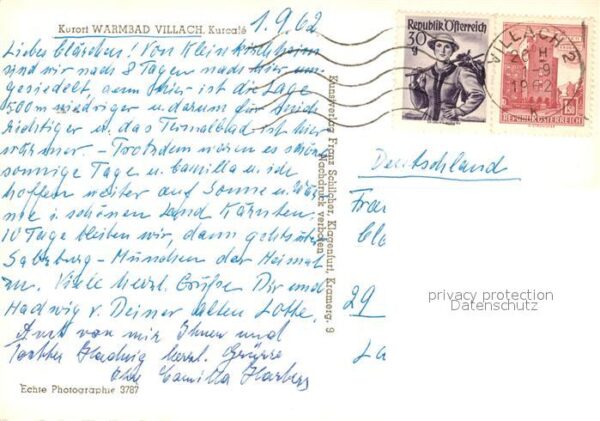 Kurort WARMBAD VILLACH, Kurcafé
1.9.62
Liebes Clärchen! Von Kleinkirchheim
sind wir nach 8 Tagen nach hier um-
gesiedelt, denn hier ist die Lage
500m niedriger u. darum für beide
richtiger u. das Termalbad ist hier
wärmer. - Trotzdem waren es schöne
sonnige Tage u. Camilla u. ich
hoffen weiter auf Sonne u. Wär-
me i. schönen Land Kärnten.
10 Tage bleiben wir, dann gehts über
Salzburg - München der Heimat
zu. Viele herzl. Grüße Dir und
Hadwig v. Deiner alten Lotte.
Auch von mir Ihnen und
Tochter Hadwig herzl. Grüsse
Ihre Camilla
Echte Photographie 3787
Kunstverlag Franz Schilcher, Klagenfurt, Kramerg. 9
Nachdruck verboten
Republik Österreich
30 g
VILLACH 2
1962
REPUBLIK ÖSTERREICH
Deutschland
Frau
Cla
29
La
privacy protection
Datenschutz